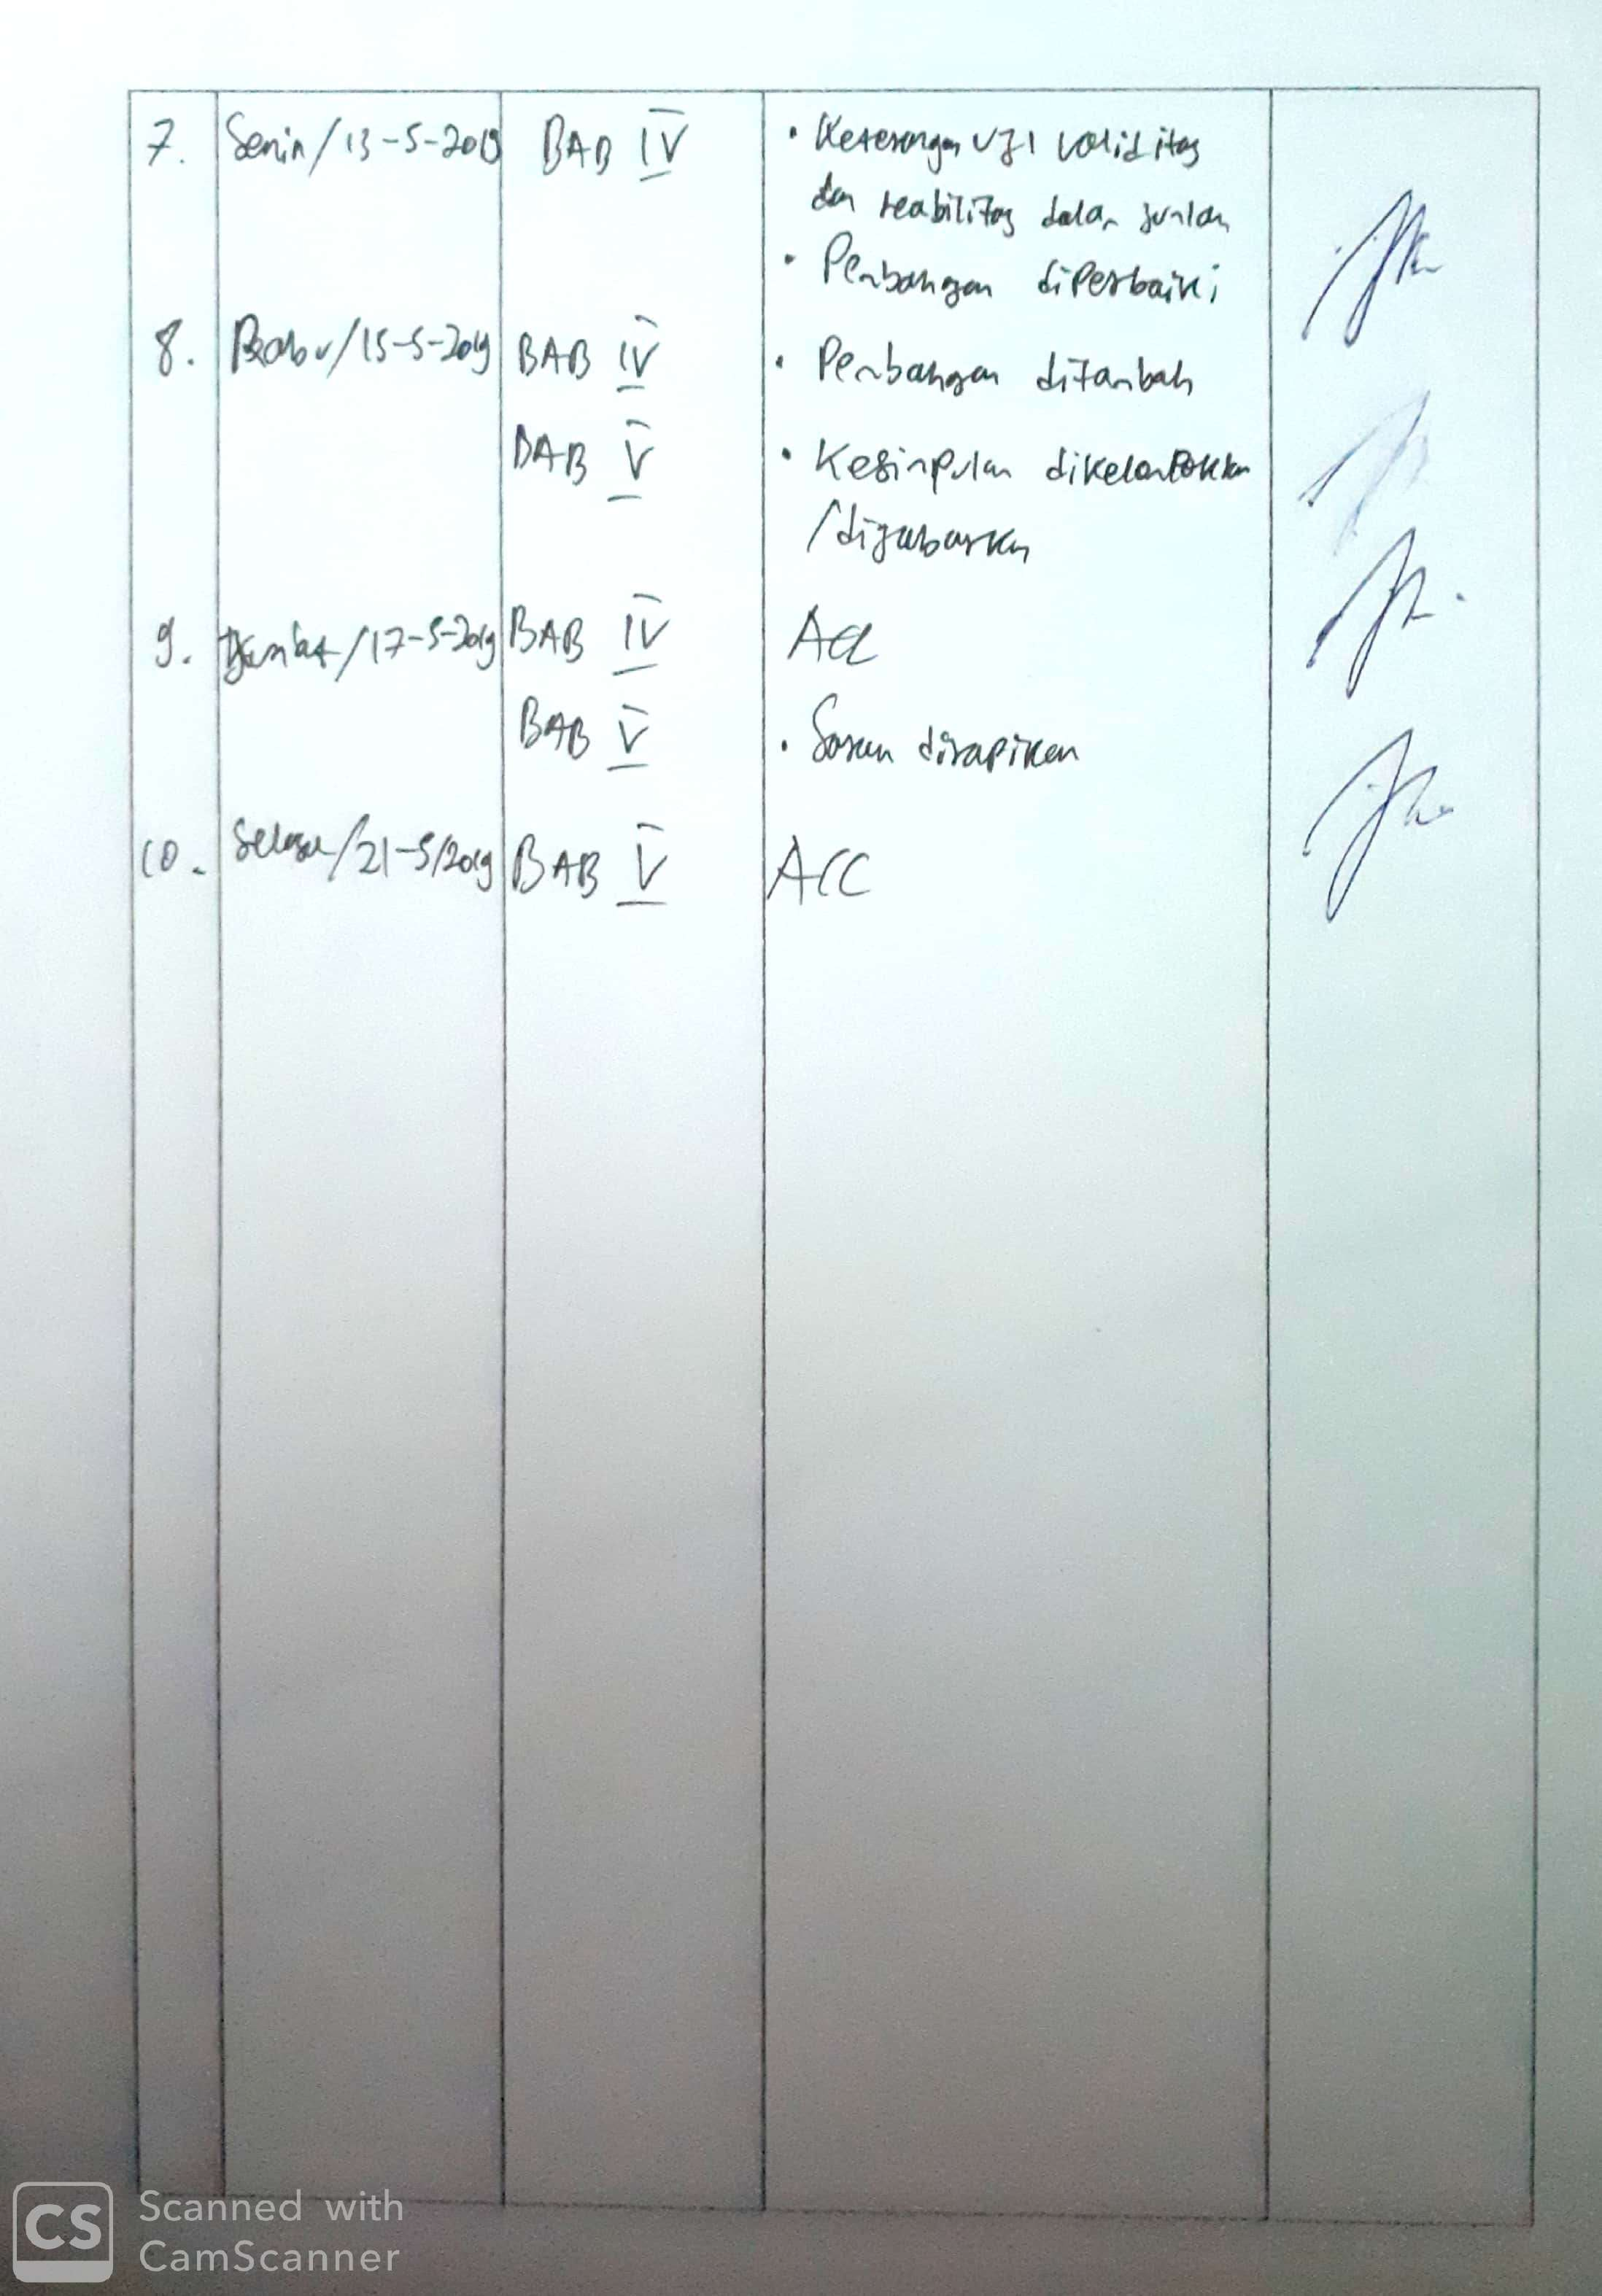 7. Senin/13-5-2019 BAB IV • Keterangan Uji validitas
dan reabilitas dalam jumlah
• Pembahasan diperbaiki
8. Rabu/15-5-2019 BAB IV • Pembahasan ditambah
BAB V • Kesimpulan dikelompokkan
/digabarkan
9. Jum'at/17-5-2019 BAB IV Acc
BAB V • Saran dirapikan
10. Selasa/21-5/2019 BAB V ACC
CS Scanned with
CamScanner